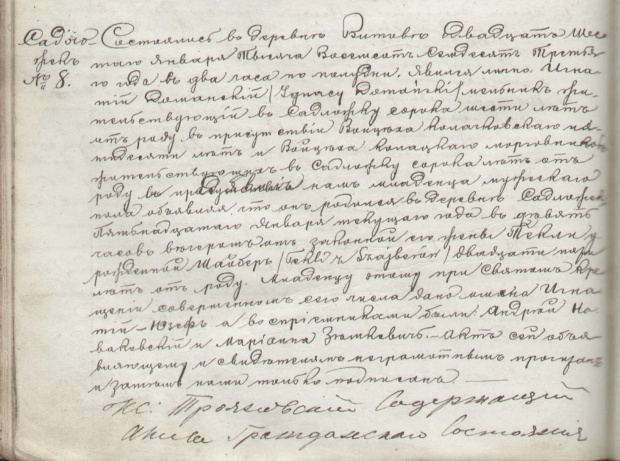 Садлo-
жекъ
№ 8.
Состоялось въ деревнѣ Витово двадцать шес-
таго Января тысяча восемьсотъ семдесятъ третья-
го года въ два часа по полудни. Явился лично Игна-
тій Доманскій /Ignacy Domański/ мельникъ жи-
тельствующій въ Садложку сорока шести лѣтъ
отъ роду въ присутствіи Войцѣха пя-
тидесяти лѣтъ и Войцѣха
жительствующихъ въ Садложку сорока лѣтъ отъ
роду и предъявилъ намъ младенца мужескаго
пола объявляя что онъ родился въ деревнѣ Садложкѣ
Пятьнадцатаго Января текущаго года въ девять
часовъ вечеромъ отъ законной его жены Текли у-
рожденной Шайберъ /Tekli z Szajberów/ двадцати
лѣтъ отъ роду. Младенцу этому при Святомъ Кре-
щеніи совершенномъ сего числа дано имена Игна-
тій-Юзефъ а воспріемниками были: Андрей Но-
ваковскій и Маріанна Актъ сей объя-
вляющему и свидѣтелямъ неграмотнымъ прочитанъ
и затѣмъ нами только подписанъ. —
Кс: Содержащій
Акты Гражданскаго Состоянія